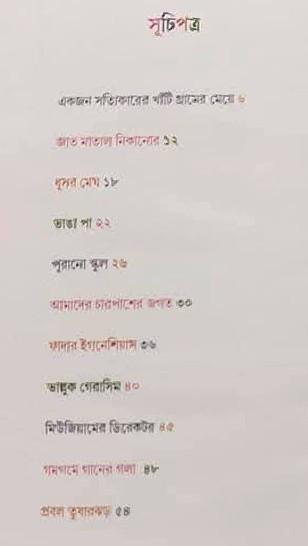 সূচিপত্র
একজন সত্যিকারের খাঁটি গ্রামের মেয়ে ৬
জাত মাতাল নিকানোর ১২
ধূসর মেঘ ১৮
ভাঙা পা ২২
পুরানো স্কুল ২৬
আমাদের চারপাশের জগত ৩০
ফাদার ইগনেশিয়াস ৩৬
ভাল্লুক গেরাসিম ৪০
মিউজিয়ামের ডিরেকটর ৪৫
গমগমে গানের গলা ৪৮
প্রবল তুষারঝড় ৫৪